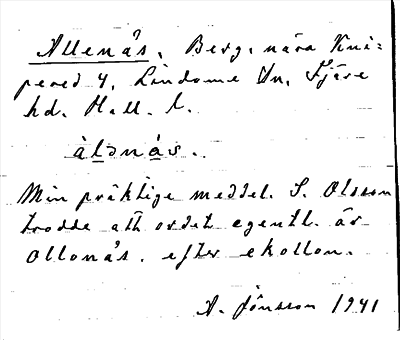 Allenås. Berg. nära Kni=
pered 4, Lindome sn, Fjäre
hd. Hall. l.
àlənás.
Min präktige meddel. S. Olsson
trodde att ordet egentl. är
Ollonås. efter ekollon.
A. Jönsson 1941